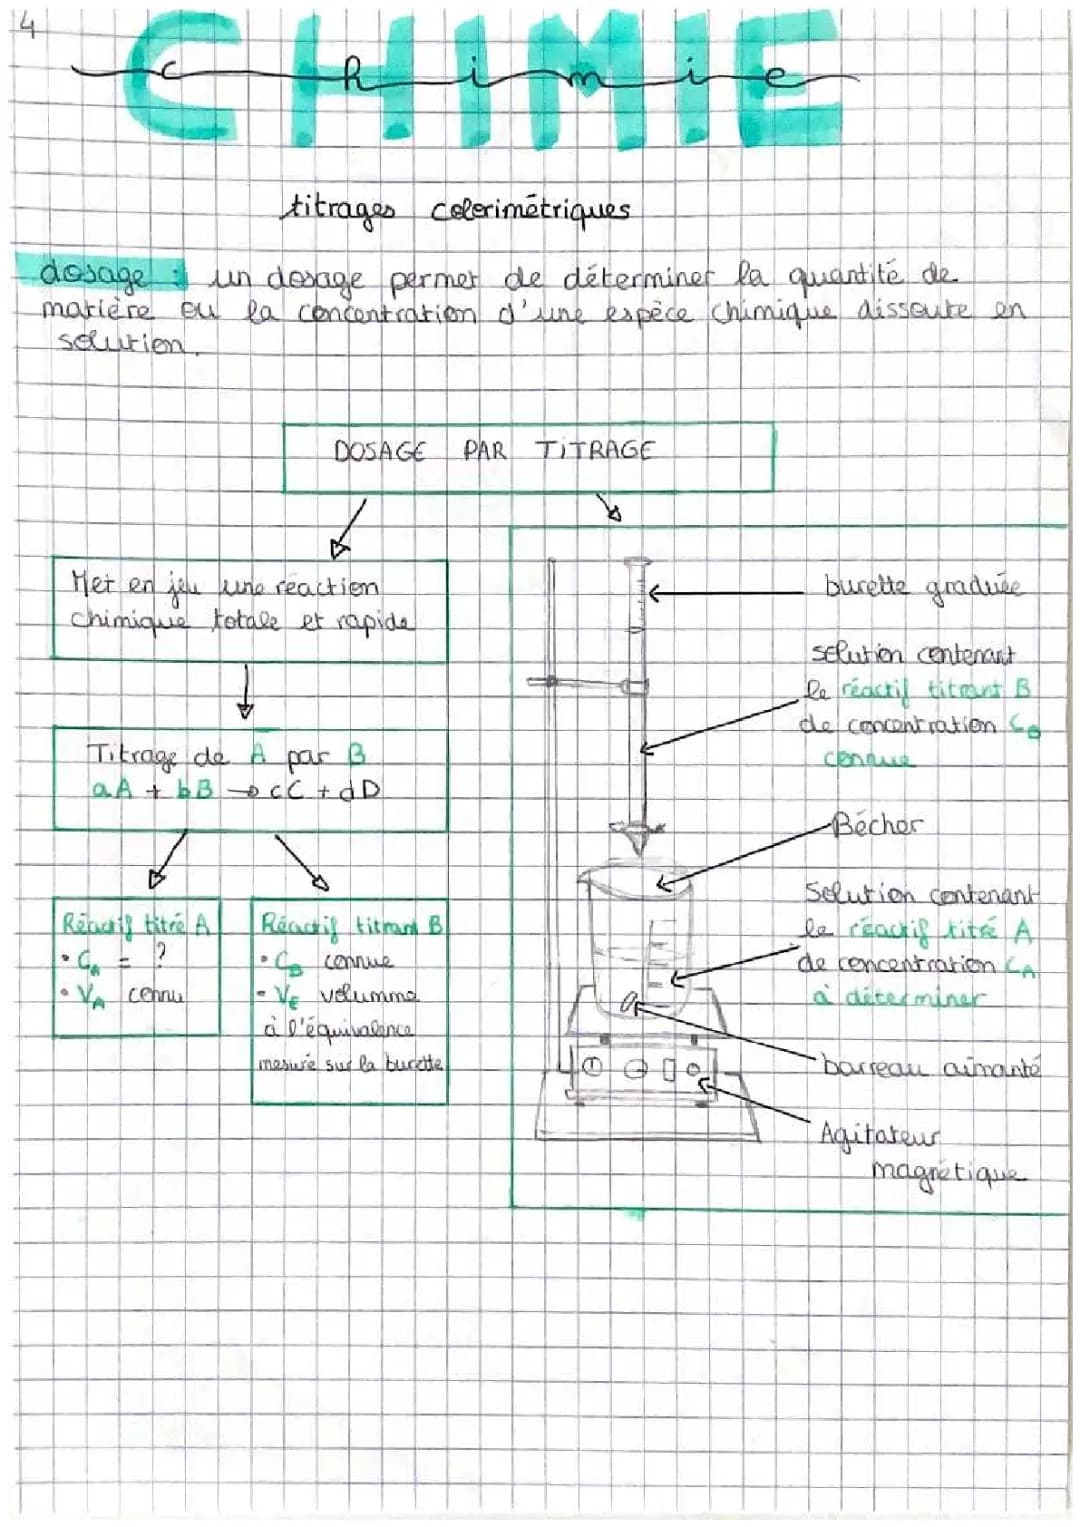 4
CHIMIE
chimie
titrages colorimétriques
dosage : un dosage permet de déterminer la quantité de
matière ou la concentration d'une espèce chimique dissoute en
solution.
DOSAGE PAR TITRAGE
Met en jeu une réaction
chimique totale et rapide
Titrage de A par B
aA + bB → cC + dD
Réactif titré A
• CA = ?
• VA connu
Réactif titrant B
• CB connue
• VE volumme
à l'équivalence
mesuré sur la burette
burette graduée
solution contenant
le réactif titrant B
de concentration CB
connue
Bécher
Solution contenant
le réactif titré A
de concentration CA
à déterminer
barreau aimanté
Agitateur
magnétique